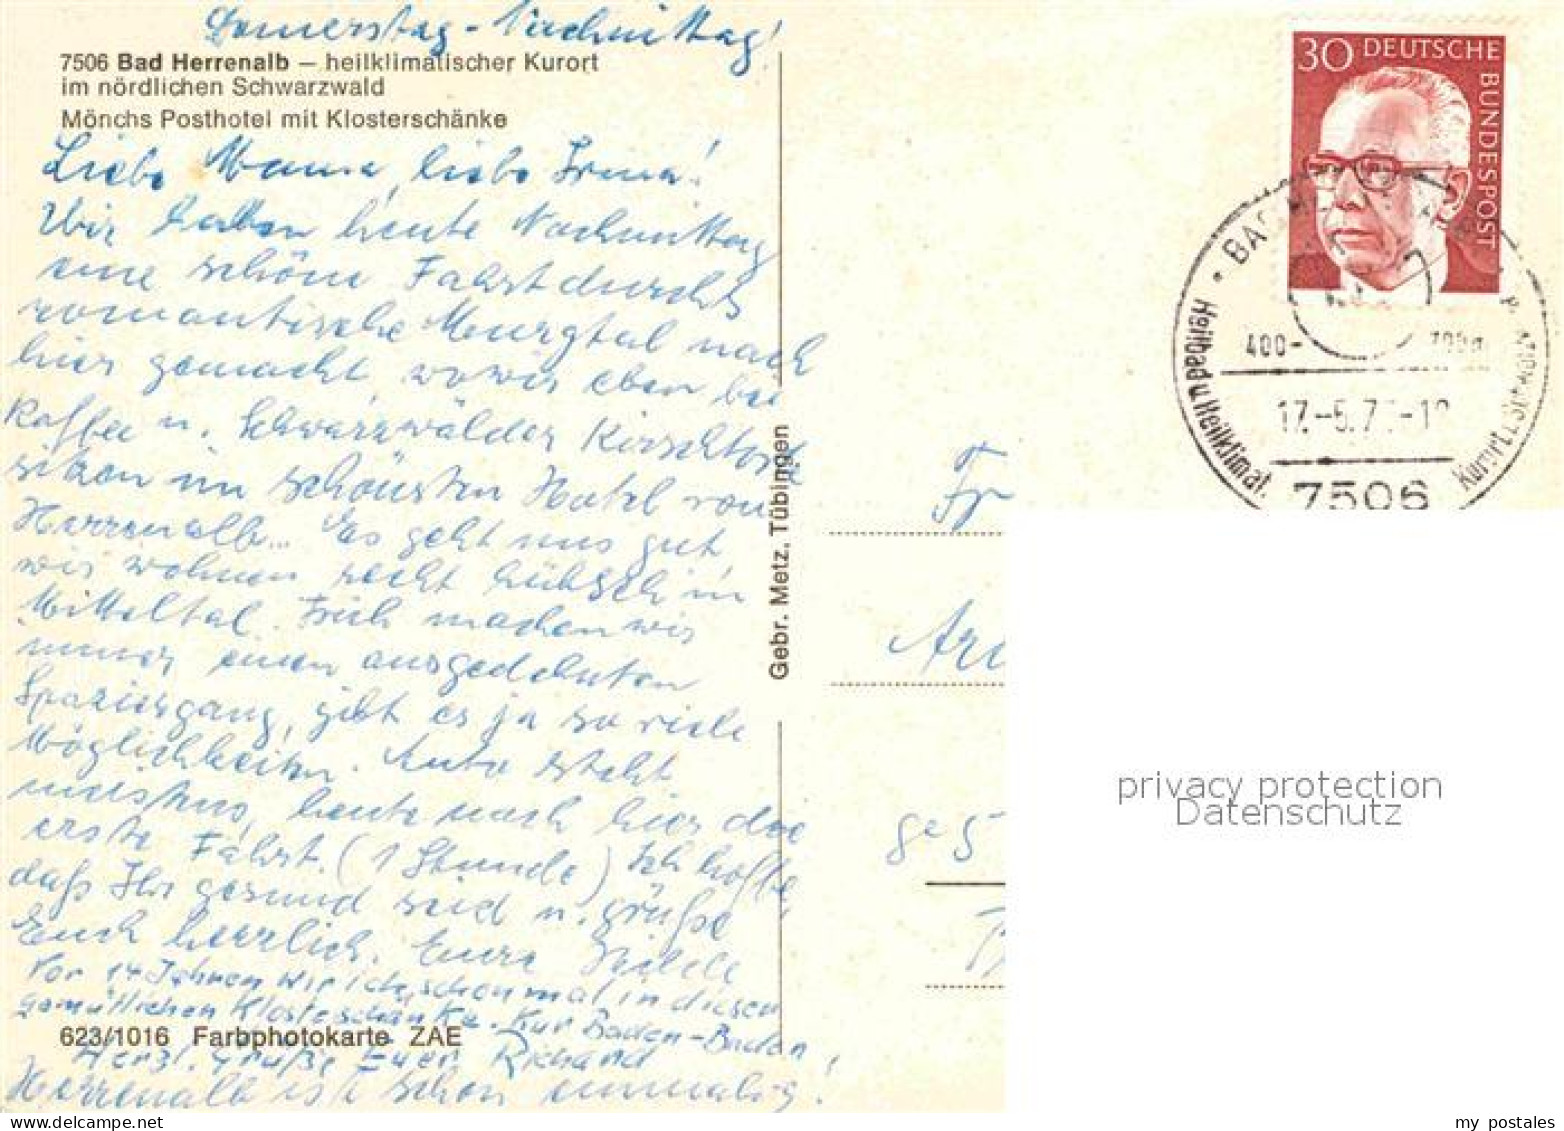 Donnerstag - Nachmittag!
7506 Bad Herrenalb – heilklimatischer Kurort
im nördlichen Schwarzwald
Mönchs Posthotel mit Klosterschänke
Liebe Mama, liebe Irma!
Wir haben heute Nachmittag
eine schöne Fahrt durchs
romantische Murgtal nach
hier gemacht, wo wir eben bei
Kaffee u. Schwarzwälder Kirschtorte
sitzen im schönsten Hotel von
Herrenalb... Es geht uns gut
wir wohnen recht hübsch in
Mitteltal. Früh machen wir
immer einen ausgedehnten
Spaziergang, gibt es ja so viele
Möglichkeiten. Auto steht
meistens, heute nach hier die
erste Fahrt. (1 Stunde) Ich hoffe
daß Ihr gesund seid u. grüße
Euch herzlich. Eure Hilde
Vor 14 Jahren war ich schon mal in dieser
gemütlichen Klosterschänke. Kur Baden-Baden!
623/1016 Farbphotokarte ZAE
Herzl. Grüße Euer Richard
Herrenalb ist schon einmalig!
Gebr. Metz, Tübingen
30 DEUTSCHE
BUNDESPOST
BAD
Heilbad u Heilklimat.
Kurort
400-
17.-5.7
7506
Fr
privacy protection
Datenschutz
my postales